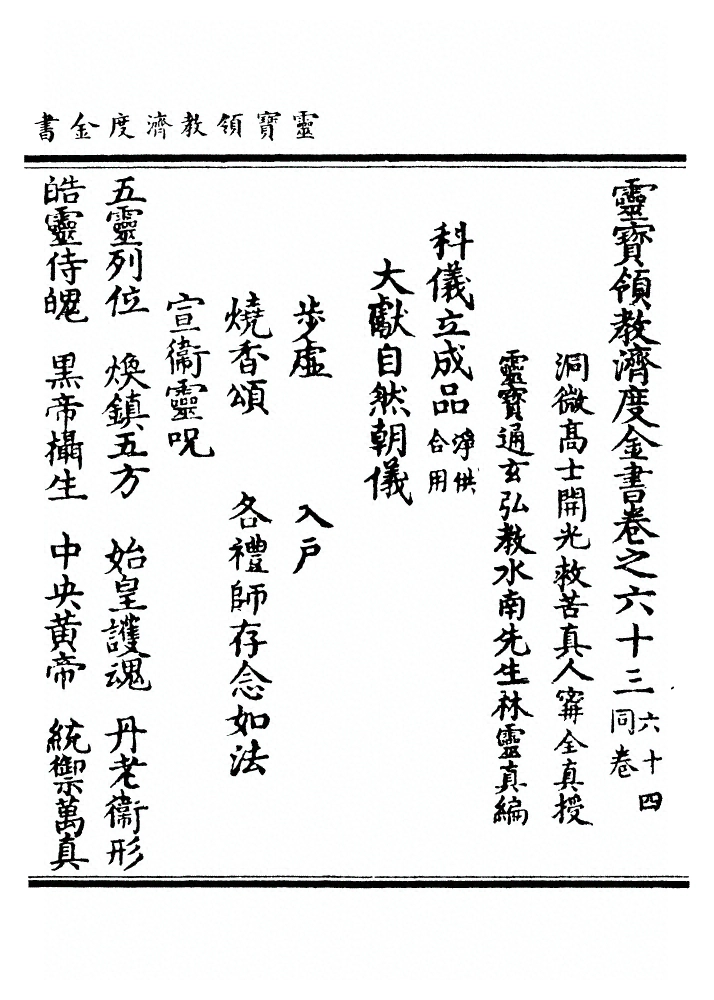 靈寶領教濟度金書
靈寶領教濟度金書卷之六十三六十四同卷
洞微高士開光救苦真人甯全真授
靈寶通玄弘教水南先生林靈真編
科儀立成品淨供合用
大獻自然朝儀
步虛 入戶
燒香頌 各禮師存念如法
宣衞靈呪
五靈列位 煥鎮五方 始皇護魂 丹老衞形
皓靈侍魄 黑帝攝生 中央黃帝 統禦萬真